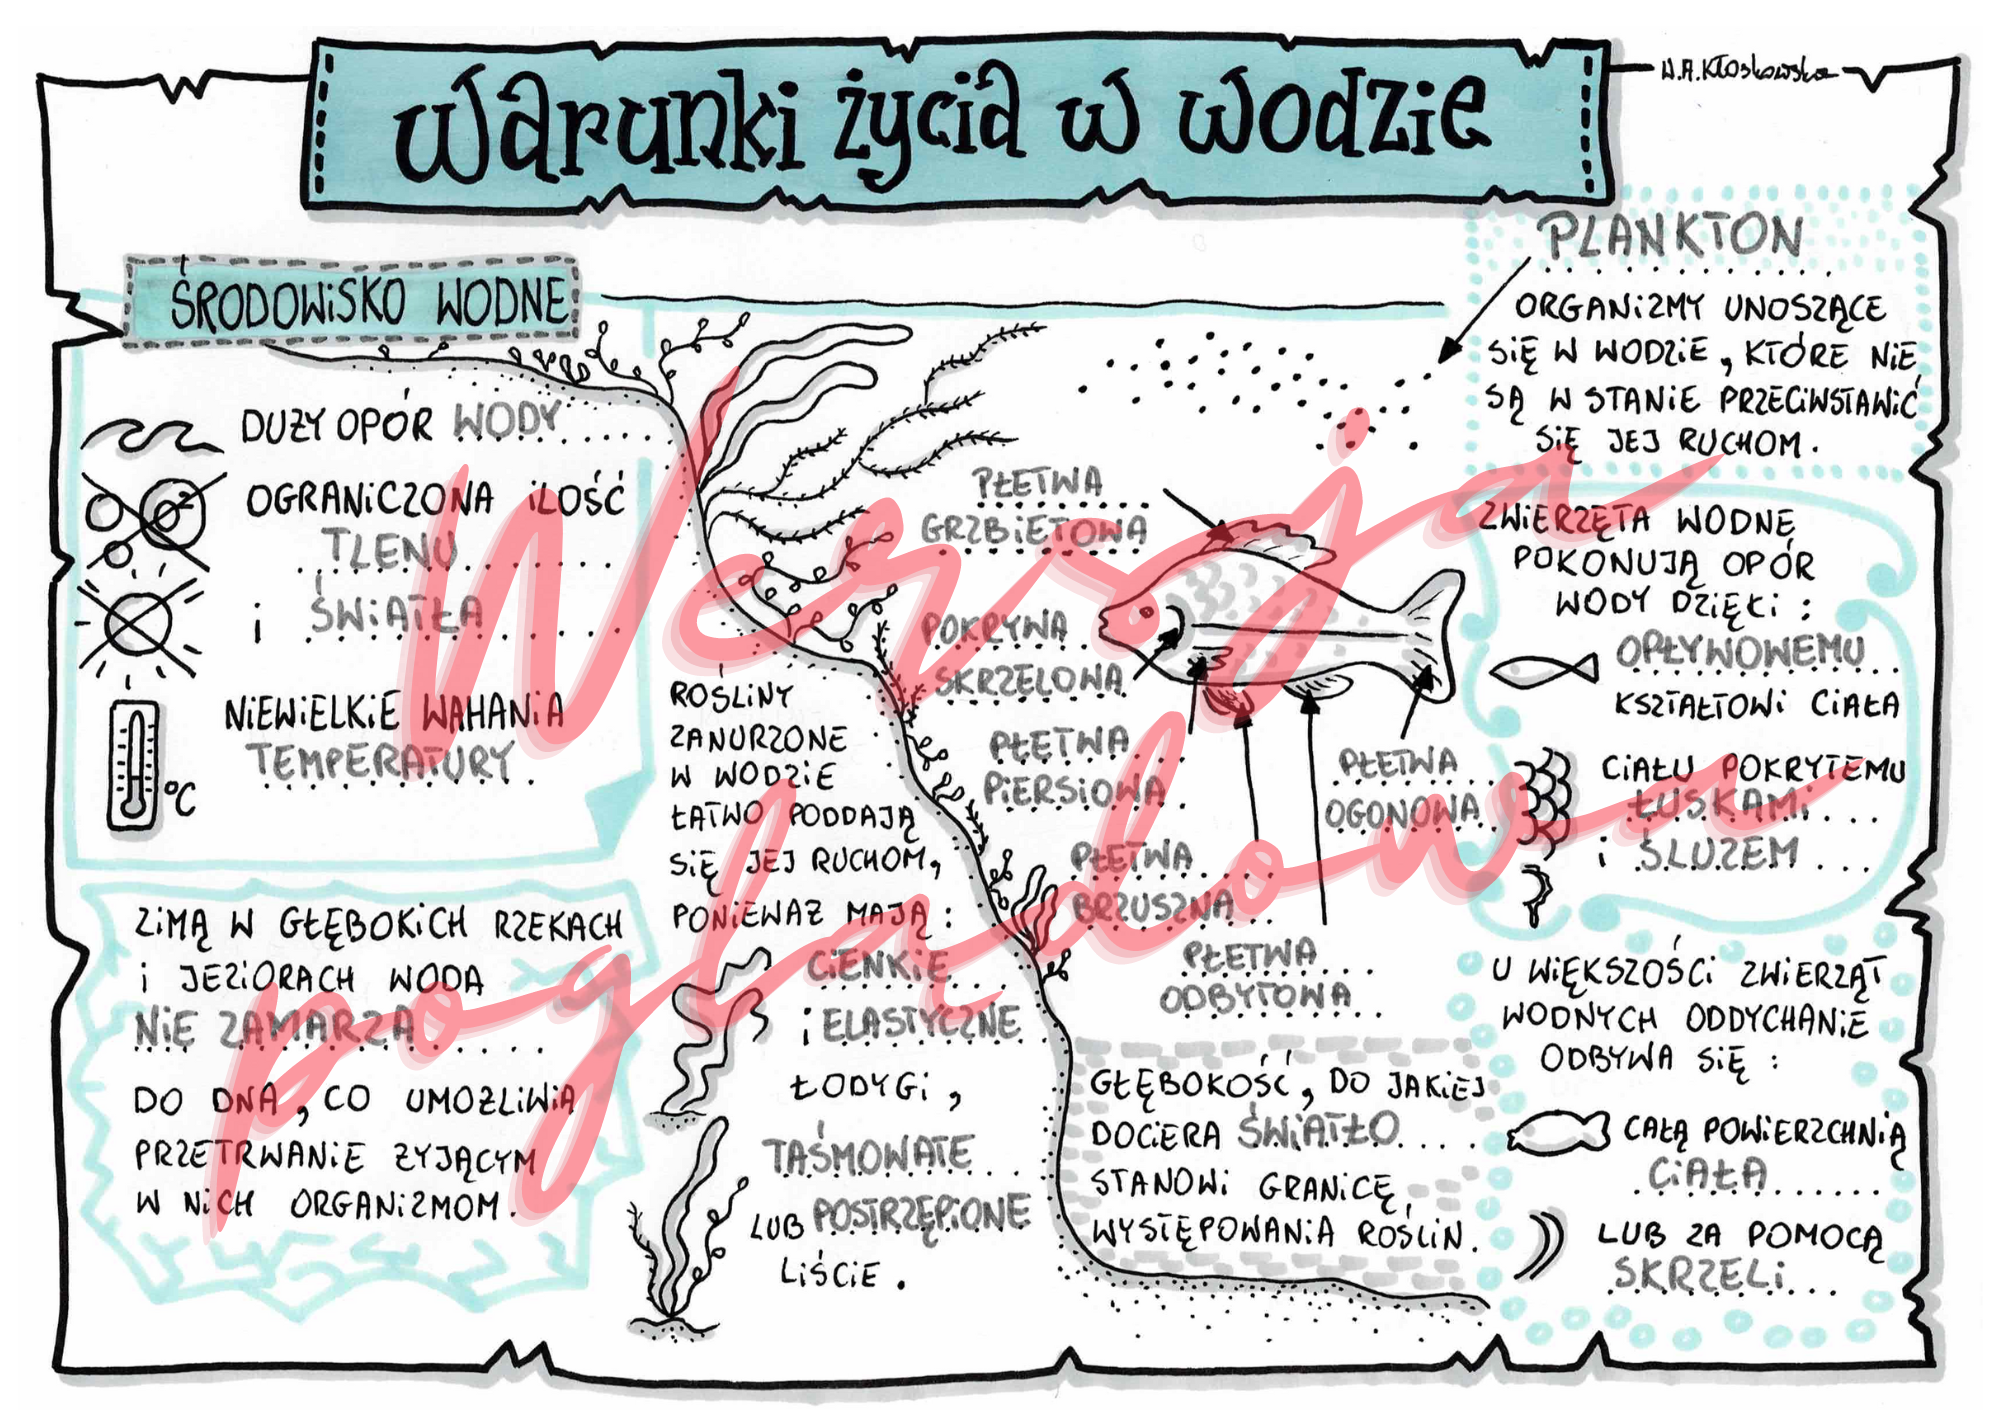 Warunki życia w wodzie
N.A.Kłoskowska
ŚRODOWISKO WODNE
DUŻY OPÓR WODY
OGRANICZONA ILOŚĆ
TLENU
I ŚWIATŁA
NIEWIELKIE WAHANIA
TEMPERATURY
°C
ZIMĄ W GŁĘBOKICH RZEKACH
I JEZIORACH WODA
NIE ZAMARZA
DO DNA, CO UMOŻLIWIA
PRZETRWANIE ŻYJĄCYM
W NICH ORGANIZMOM.
ROŚLINY
ZANURZONE
W WODZIE
ŁATWO PODDAJĄ
SIĘ JEJ RUCHOM,
PONIEWAŻ MAJĄ:
CIENKIE
I ELASTYCZNE
ŁODYGI,
TAŚMOWATE
LUB POSTRZĘPIONE
LIŚCIE.
PŁETWA
GRZBIETOWA
POKRYWA
SKRZELOWA
PŁETWA
PIERSIOWA
PŁETWA
BRZUSZNA
PŁETWA
ODBYTOWA
PŁETWA
OGONOWA
GŁĘBOKOŚĆ, DO JAKIEJ
DOCIERA ŚWIATŁO
STANOWI GRANICĘ
WYSTĘPOWANIA ROŚLIN.
PLANKTON
ORGANIZMY UNOSZĄCE
SIĘ W WODZIE, KTÓRE NIE
SĄ W STANIE PRZECIWSTAWIĆ
SIĘ JEJ RUCHOM.
ZWIERZĘTA WODNE
POKONUJĄ OPÓR
WODY DZIĘKI:
OPŁYWOWEMU
KSZTAŁTOWI CIAŁA
CIAŁU POKRYTEMU
ŁUSKAMI
I ŚLUZEM
U WIĘKSZOŚCI ZWIERZĄT
WODNYCH ODDYCHANIE
ODBYWA SIĘ:
CAŁĄ POWIERZCHNIĄ
CIAŁA
LUB ZA POMOCĄ
SKRZELI
Wersja
poglądowa